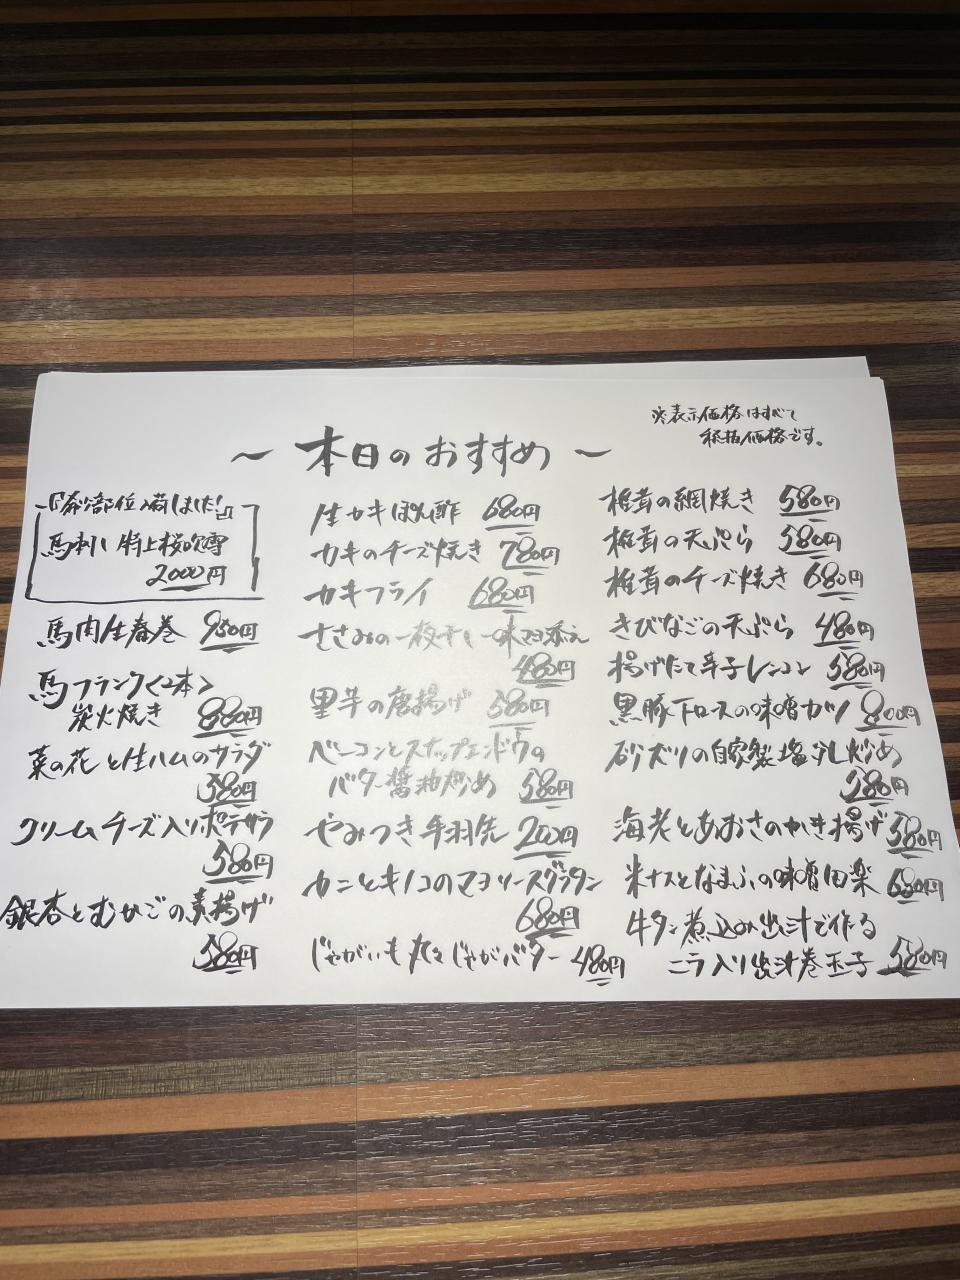 ～ 本日のおすすめ ～
※表示価格はすべて
税抜価格です。
『希少部位入荷しました!』
馬刺し 特上桜吹雪
2000円
馬肉生春巻 950円
馬フランク<2本>
炭火焼き 880円
菜の花と生ハムのサラダ
580円
クリームチーズ入りポテサラ
580円
銀杏とむかごの素揚げ
580円
生カキぽん酢 680円
カキのチーズ焼き 780円
カキフライ 680円
ささみの一夜干し 一味マヨ添え
480円
里芋の唐揚げ 580円
ベーコンとスナップエンドウの
バター醤油炒め 580円
やみつき手羽先 200円
カニとキノコのマヨソースグラタン
680円
じゃがいも丸々じゃがバター 480円
椎茸の網焼き 580円
椎茸の天ぷら 580円
椎茸のチーズ焼き 680円
きびなごの天ぷら 480円
揚げたて辛子レンコン 580円
黒豚下ロースの味噌カツ 800円
砂ズリの自家製塩ダレ炒め
580円
海老とあおさのかき揚げ 580円
米ナスとなまふの味噌田楽 680円
牛タン煮込み出汁で作る
ニラ入り出汁巻玉子 580円